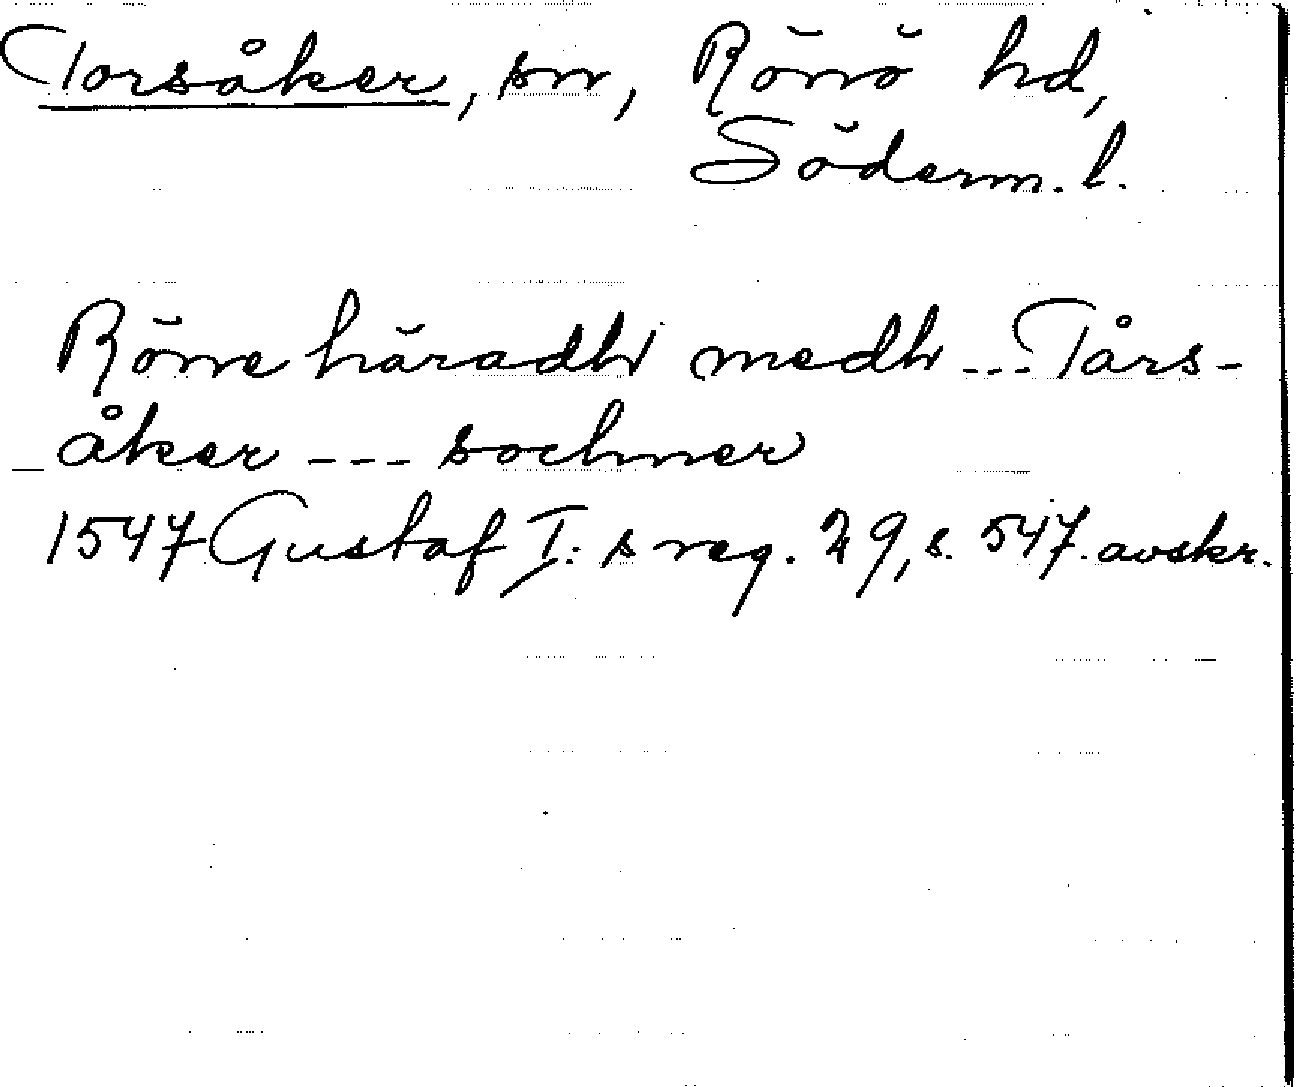 Torsåker, sn, Rönö hd,
Söderm. l.
Röne häradh medh --- Tårs-
åker --- sochner
1547 Gustaf I:s reg. 29, s. 547. avskr.